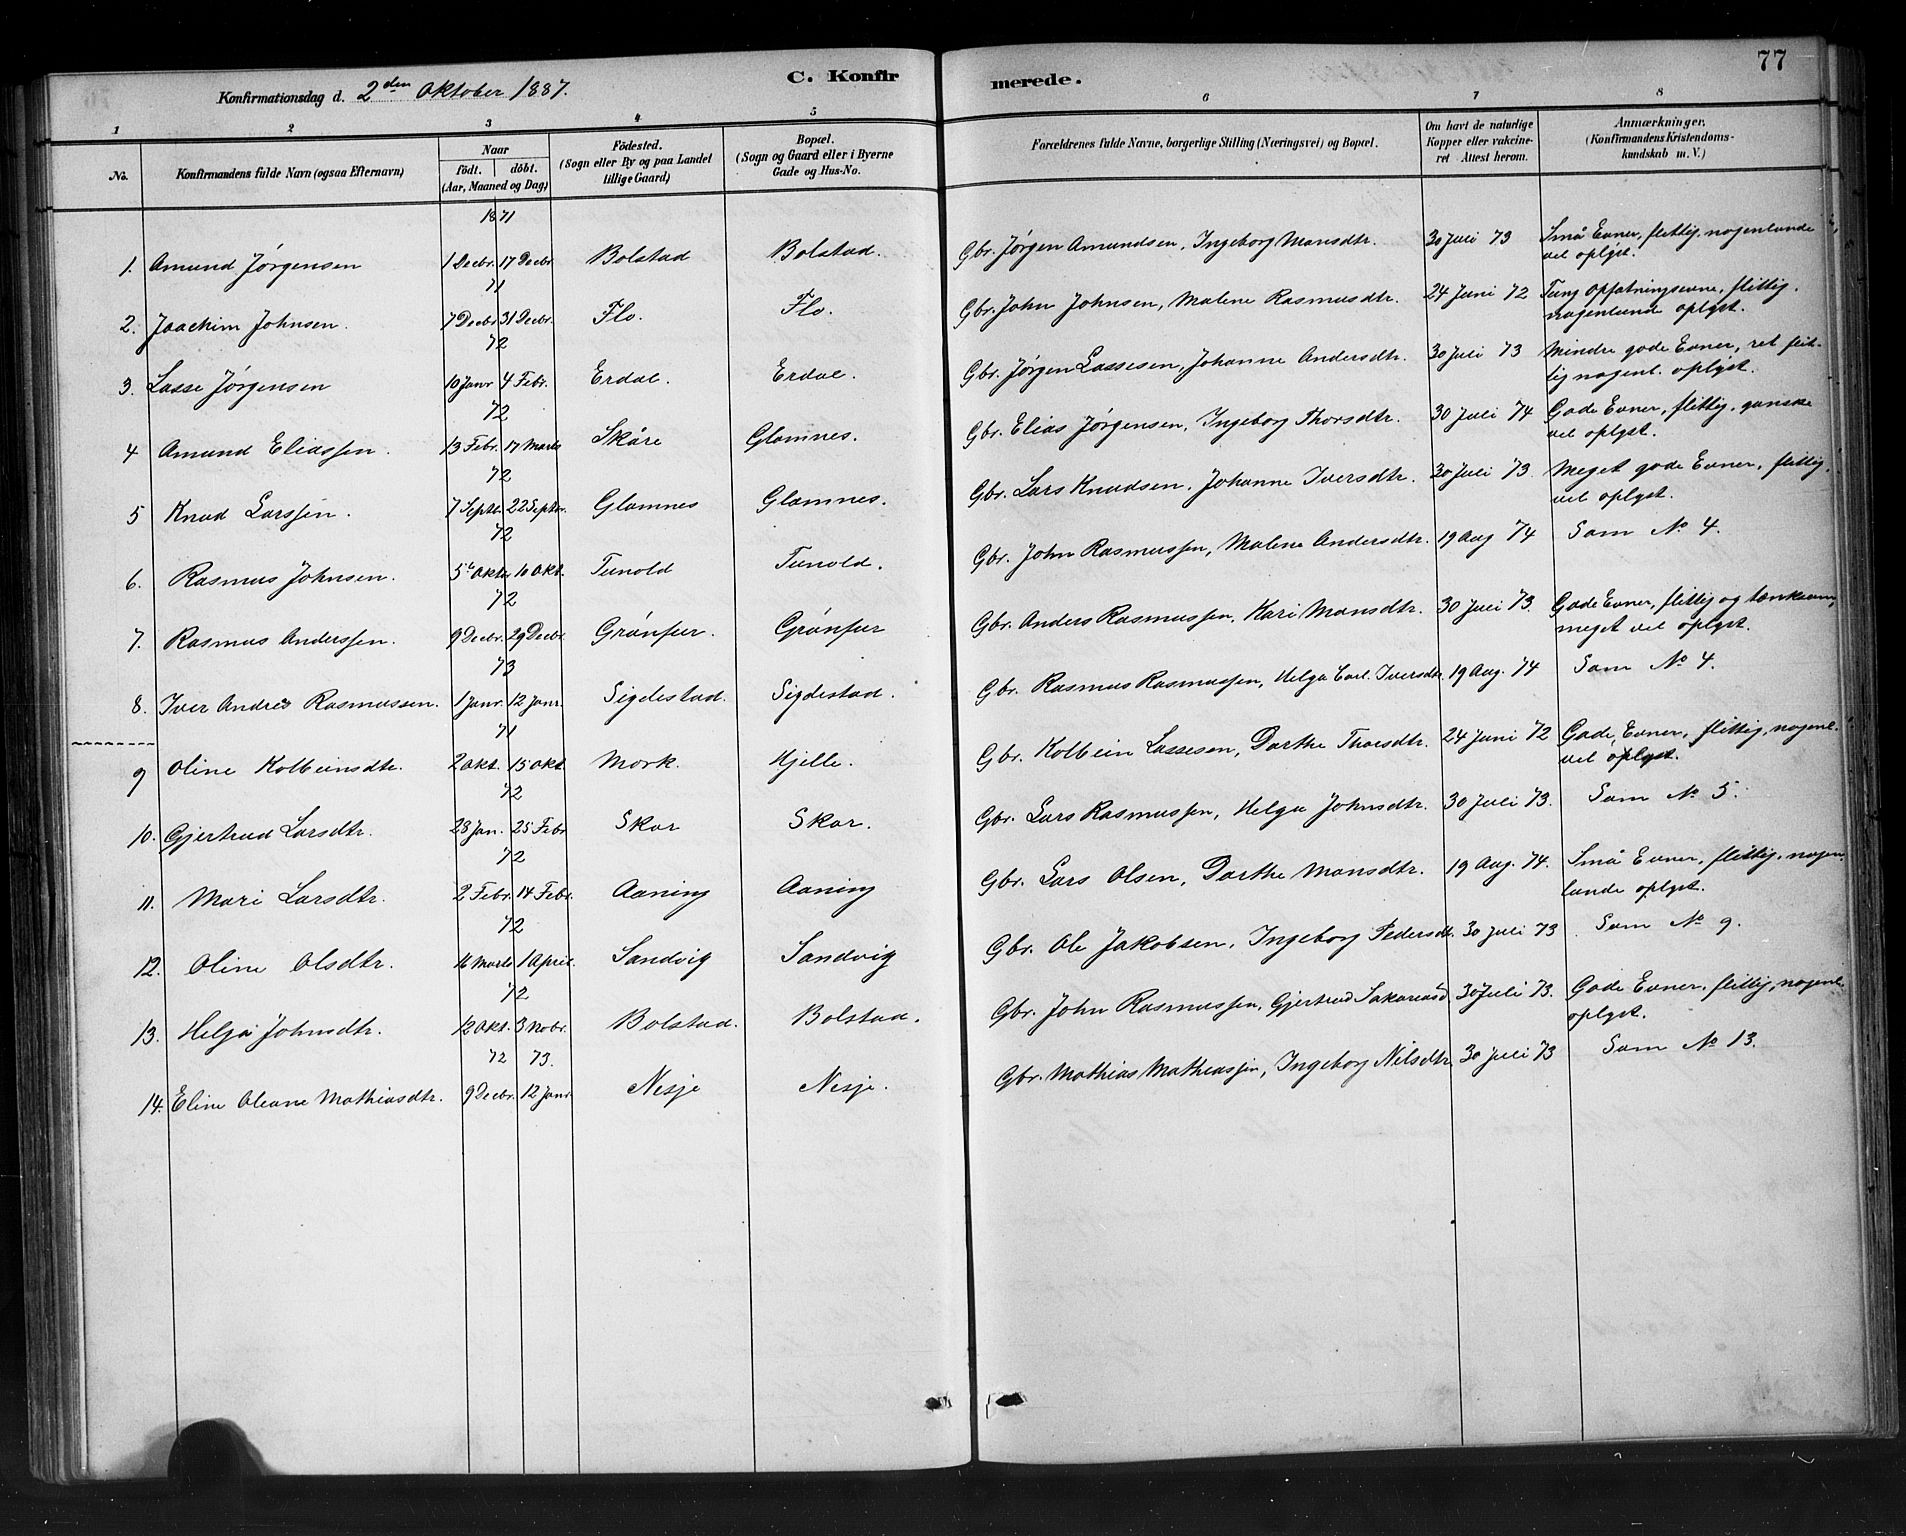 77
C. Konfirmerede.
Konfirmationsdag d. 2den Oktober 1887.
1 2 3 4 5 6 7 8
No. Konfirmandens fulde Navn (ogsaa Efternavn) Naar født. døbt. (Aar, Maaned og Dag) Fødested. (Sogn eller By og paa Landet tillige Gaard) Bopæl. (Sogn og Gaard eller i Byerne Gade og Hus-No. Forældrenes fulde Navne, borgerlige Stilling (Næringsvei) og Bopæl. Om havt de naturlige Kopper eller vakcineret Attest herom. Anmærkninger. (Konfirmandens Kristendomskundskab m. V.)
1871
1. Amund Jørgensen 1 Decbr. 17 Decbr. Bolstad Bolstad. Gbr. Jørgen Amundsen, Ingeborg Monsdtr. 30 Juli 73 Små Evner, flittig, nogenlunde
vel oplyst.
71
2. Joachim Johnsen. 7 Decbr. 31 Decbr. Flo. Flo. Gbr. John Johnsen, Malene Rasmusdtr. 24 Juni 72 Tung Opfatningsevne, flittig.
nogenlunde oplyst.
72
3. Lasse Jørgensen 10 Janr 4 Febr. Erdal. Erdal. Gbr. Jørgen Lassesen, Johanne Andersdtr. 30 Juli 73 Mindre gode Evner, ret flit-
tig nogenl. oplyst.
72
4 Amund Eliassen. 13 Febr. 17 Marts Skåre Glomnes. Gbr. Elias Jørgensen, Ingeborg Thorsdtr. 30 Juli 74 Gode Evner, flittig, ganske
vel oplyst.
72
5 Knud Larssen. 7 Septbr. 22 Septbr. Glomnes Glomnes. Gbr. Lars Knudsen, Johanne Iversdtr. 30 Juli 73. Meget gode Evner, flittig,
vel oplyst.
72
6. Rasmus Johnsen. 5 Oktbr 10 Okt. Tunold Tunold. Gbr. John Rasmussen, Malene Andersdtr. 19 Aug 74 Som No 4.
72
7. Rasmus Anderssen. 9 Decbr. 29 Decbr Grønfur. Grønfur Gbr. Anders Rasmussen, Kari Monsdtr. 30 Juli 73. Gode Evner, flittig og tænksom,
meget vel oplyst.
73
8. Iver Andreas Rasmussen. 1 Janr. 12 Janr. Sigdestad. Sigdestad. Gbr. Rasmus Rasmussen, Helga Carl. Iversdtr. 19 Aug. 74 Som No 4.
71
9 Oline Kolbeinsdtr. 2 Okt. 15 Okt. Mork. Hjelle. Gbr. Kolbein Lassesen, Dorthe Thorsdtr. 24 Juni 72 Gode Evner, flittig, nogenl.
vel oplyst.
72
10. Gjertrud Larsdtr. 28 Jan. 25 Febr Skor Skor. Gbr. Lars Rasmussen, Helga Johnsdtr. 30 Juli 73. Som No 5.
72
11. Mari Larsdtr. 2 Febr. 14 Febr. Aaning Aaning Gbr. Lars Olsen, Dorthe Monsdtr. 19 Aug. 74. Små Evner, flittig, nogen-
lunde oplyst.
72
12. Oline Olsdtr. 16 Marts 1 April. Sandvig Sandvig Gbr. Ole Jakobsen, Ingeborg Pedersdt. 30 Juli 73. Som No 9.
72
13. Helga Johnsdtr. 12 Okt. 3 Nobr. Bolstad. Bolstad. Gbr. John Rasmussen, Gjertrud Sakariasd. 30 Juli 73. Gode Evner, flittig, nogenl.
oplyst.
72 73.
14. Eline Oleane Mathiasdtr. 9 Decbr. 12 Janr. Nesje Nesje. Gbr. Mathias Mathiassen, Ingeborg Nilsdtr. 30 Juli 73 Som No 13.